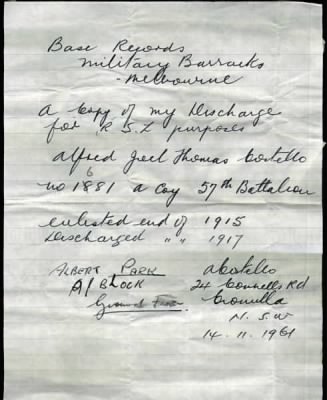 Base Records
Military Barracks
- Melbourne
a Copy of my Discharge
for R.S.L purposes
Alfred Joel Thomas Costello
6
no 1881 a Coy 57th Battalion
enlisted end of 1915
Discharged " " 1917
ALBERT PARK
A/BLOCK
Ground Floor
A Costello
24 Connells Rd
Cronulla
N.S.W
14.11.1961